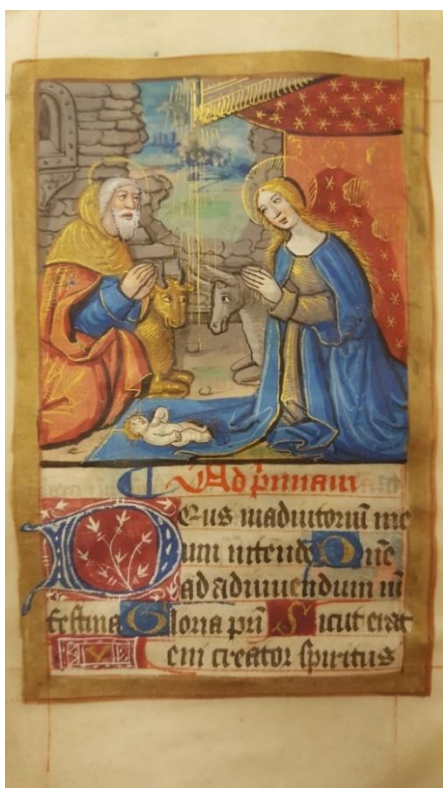 Ad primam
Deus in adiutoriū me
um intende Dn̄e
ad adiuuendum m̄
festina Gloria pri̅ Sicut erat
Veni creator spiritus